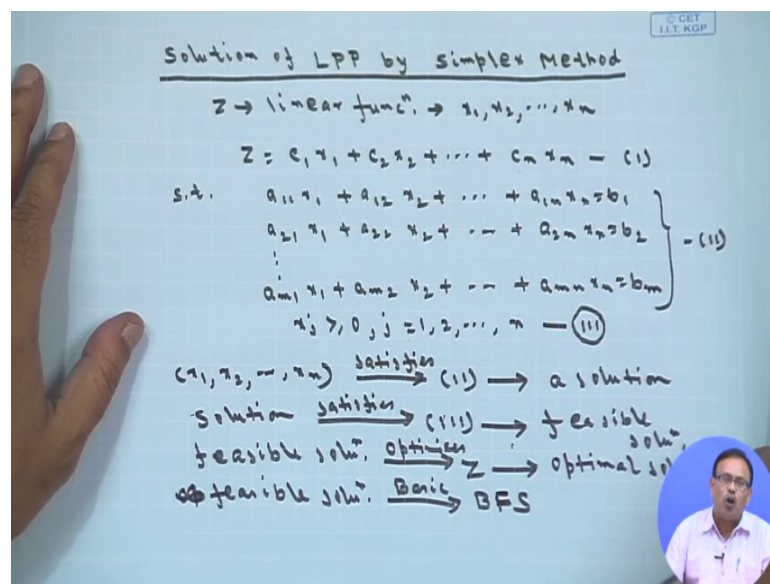 © CET
I.I.T. KGP
Solution of LPP by Simplex Method
Z → linear funcⁿ. → x₁, x₂, ..., xₙ
Z = c₁x₁ + c₂x₂ + ... + cₙxₙ — (I)
s.t. a₁₁x₁ + a₁₂x₂ + ... + a₁ₙxₙ = b₁
a₂₁x₁ + a₂₂x₂ + ... + a₂ₙxₙ = b₂ — (II)
⋮
aₘ₁x₁ + aₘ₂x₂ + ... + aₘₙxₙ = bₘ
xⱼ ≥ 0, j = 1, 2, ..., n — (III)
(x₁, x₂, ..., xₙ) satisfies → (II) → a solution
Solution satisfies → (III) → feasible soluⁿ.
feasible soluⁿ. Optimizes → Z → Optimal
feasible soluⁿ. Basic → BFS